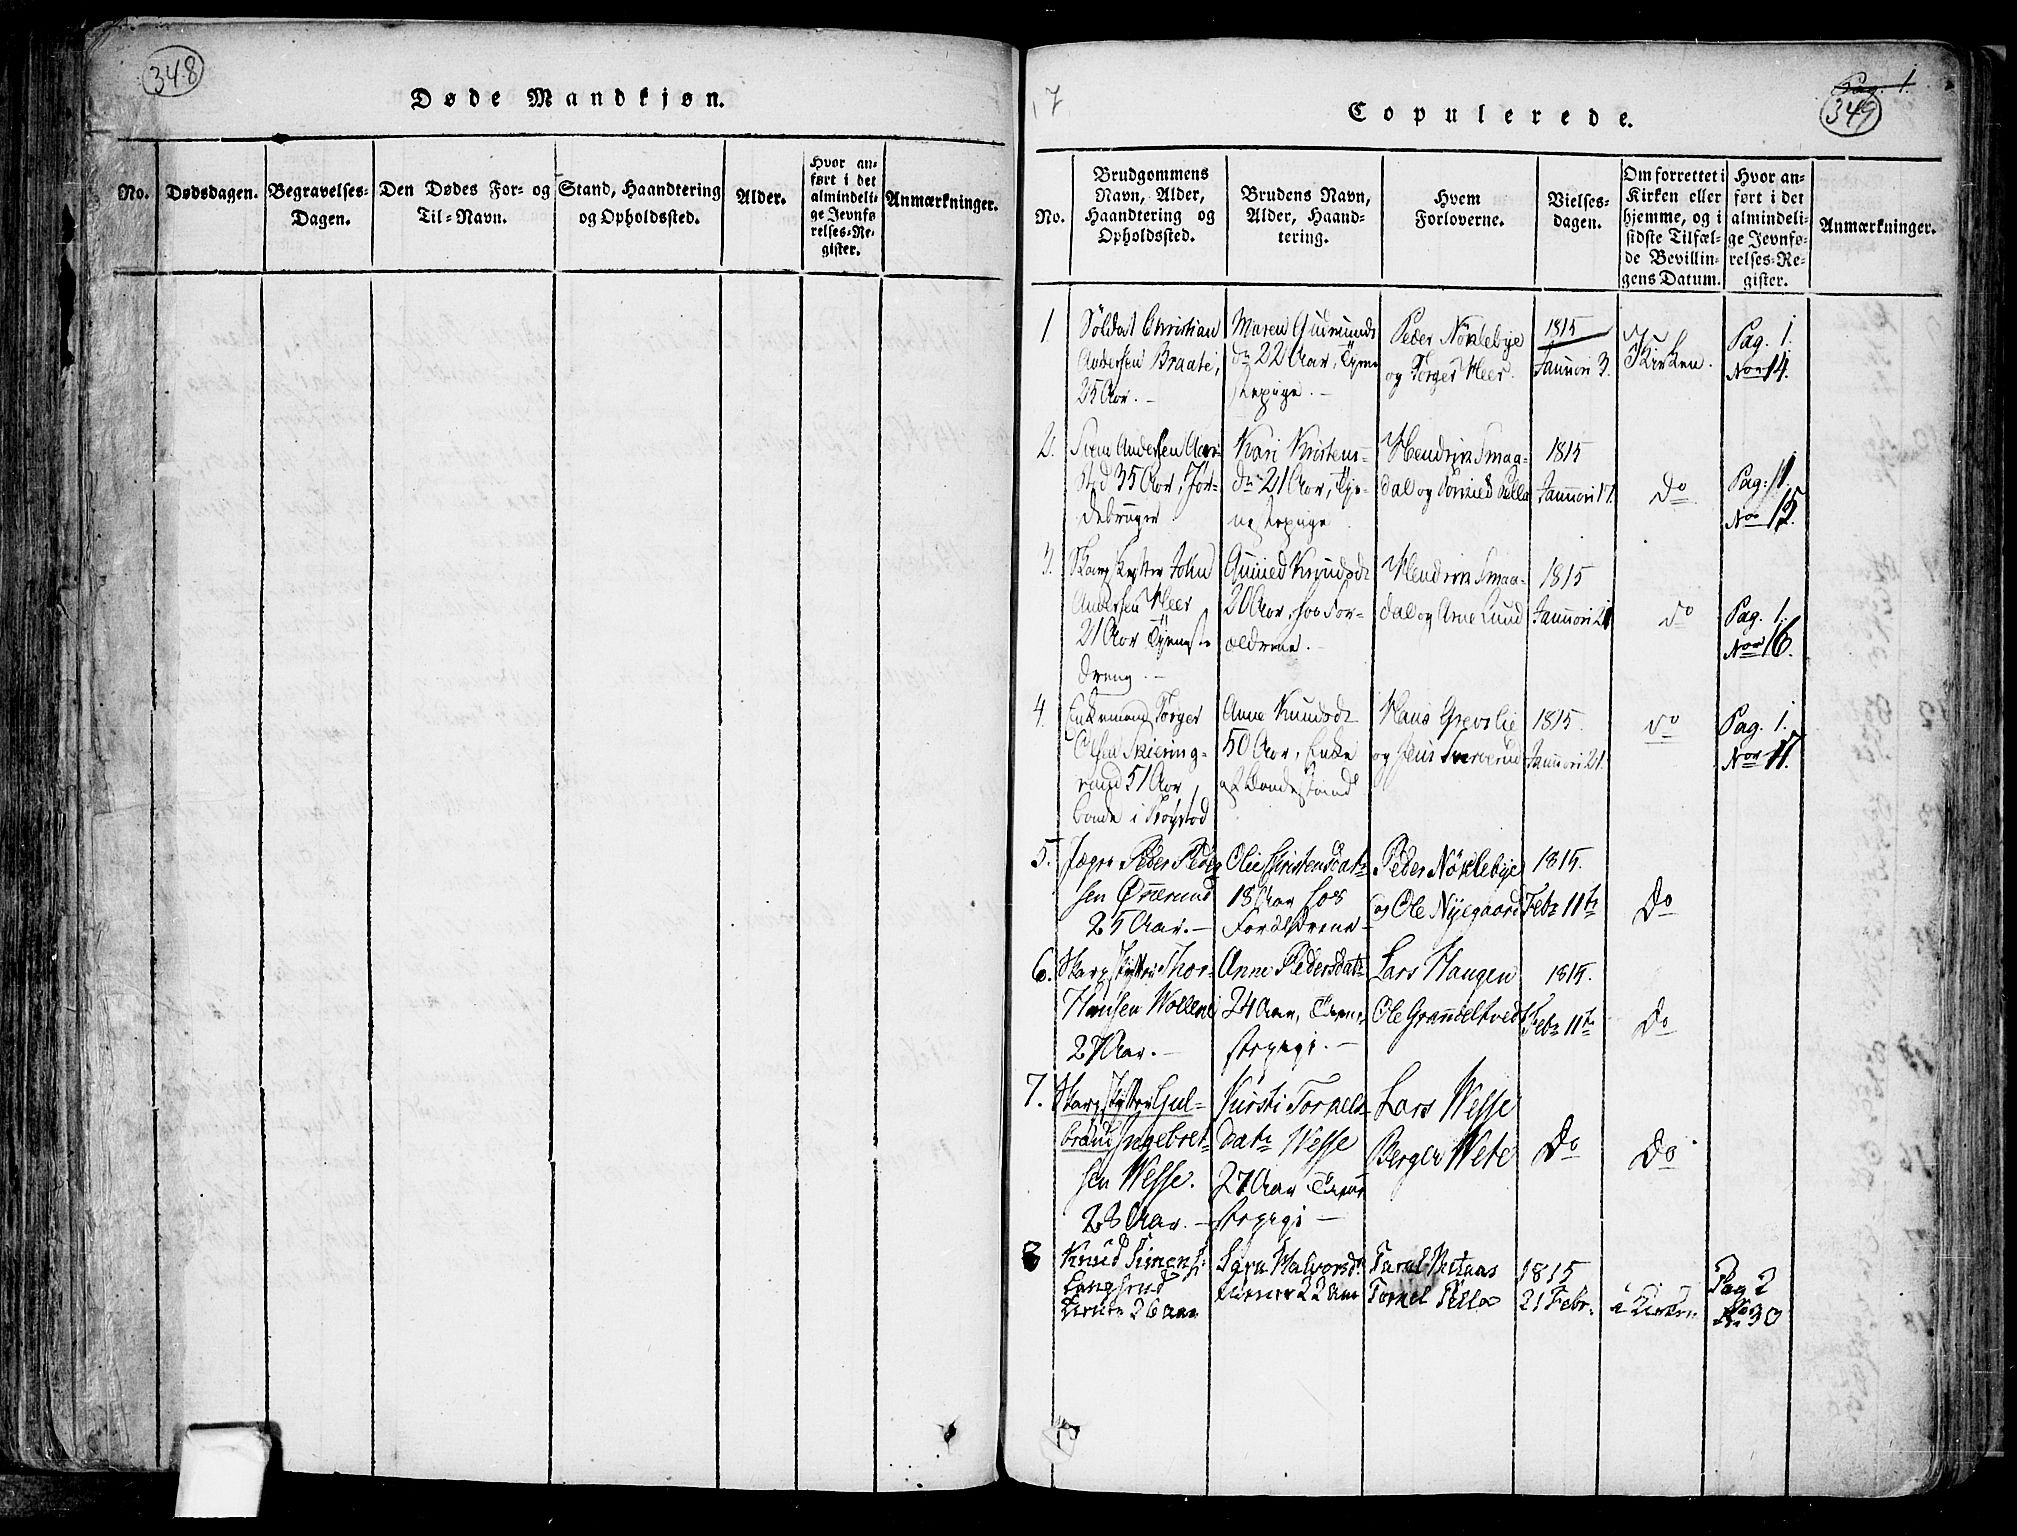 348
Døde Mandkjøn.
No.
Dødsdagen.
Begravelses-
Dagen.
Den Dødes For- og
Til-Navn.
Stand, Haandtering
og Opholdssted.
Alder.
Hvor an-
ført i det
almindeli-
ge Jevnfø
relses-Re-
gister.
Anmærkninger.
7
Pag. 1.
349
Copulerede.
No.
Brudgommens
Navn, Alder,
Haandtering og
Opholdssted.
Brudens Navn,
Alder, Haand-
tering.
Hvem
Forloverne.
Vielses-
dagen.
Om forrettet i
Kirken eller
hjemme, og i
sidste Tilfæl-
de Bevillin-
gens Datum.
Hvor an-
ført i det
almindeli-
ge Jevnfø-
relses-Re-
gister.
Anmærkninger.
1.
Soldat Christian
Andersen Braate,
25 Aar. -
Maren Gudmunds
dr 22 Aar, Tjene
stepige. -
Peder Nöklebye
og Torger Meer.
1815
Januari 3.
Kirken.
Pag. 1.
No 14.
2.
Andersen
35 Aar, Jor-
debruger
Kari Kristens-
dr 21 Aar, Tje-
nestepige
Hendrik Smaa-
dal og
1815
Januari 17.
Do
Pag. 1
No 15.
3.
John
Andersen Meer
21 Aar Tjeneste
dreng. -
Gunild Knudsdr
20 Aar, hos For-
ældrene. -
Hendrik Smaa-
dal og Arne Lund
1815
Januari 21
do
Pag. 1.
No 16.
4.
Enkemand Torger
Olsen Skiering-
rud 51 Aar,
bonde i
Anne Knudsdr
50 Aar, Enke
Hans Grevslie
og Jens
1815
Januari 21.
do
Pag. 1.
No 17.
5.
Jæger Peder Peder
sen
25 Aar. -
Olie Christensdatr
18 Aar hos
Forældrene -
Peder Nöklebye
og Ole Nyegaard
1815.
Febr 11te
Do
6.
Skarpskytter Thor
Hansen
27 Aar. -
Anne Pedersdatr
24 Aar, Tjene-
stepige. -
Lars Haugen
Ole
1815.
Febr 11te
Do
7.
Skarpskytter Gul-
brand Ingebret-
sen Wesse.
28 Aar. -
Kirsti Torkels-
datr Wesse
27 Aar Tjene
stepige -
Lars Wesse
Berger
Do
Do
8
Knud Simens:
Langsrud
26 aar
Halvorsd:
22 aar
1815
21 Febr.
i Kirken
Pag 2
No 30